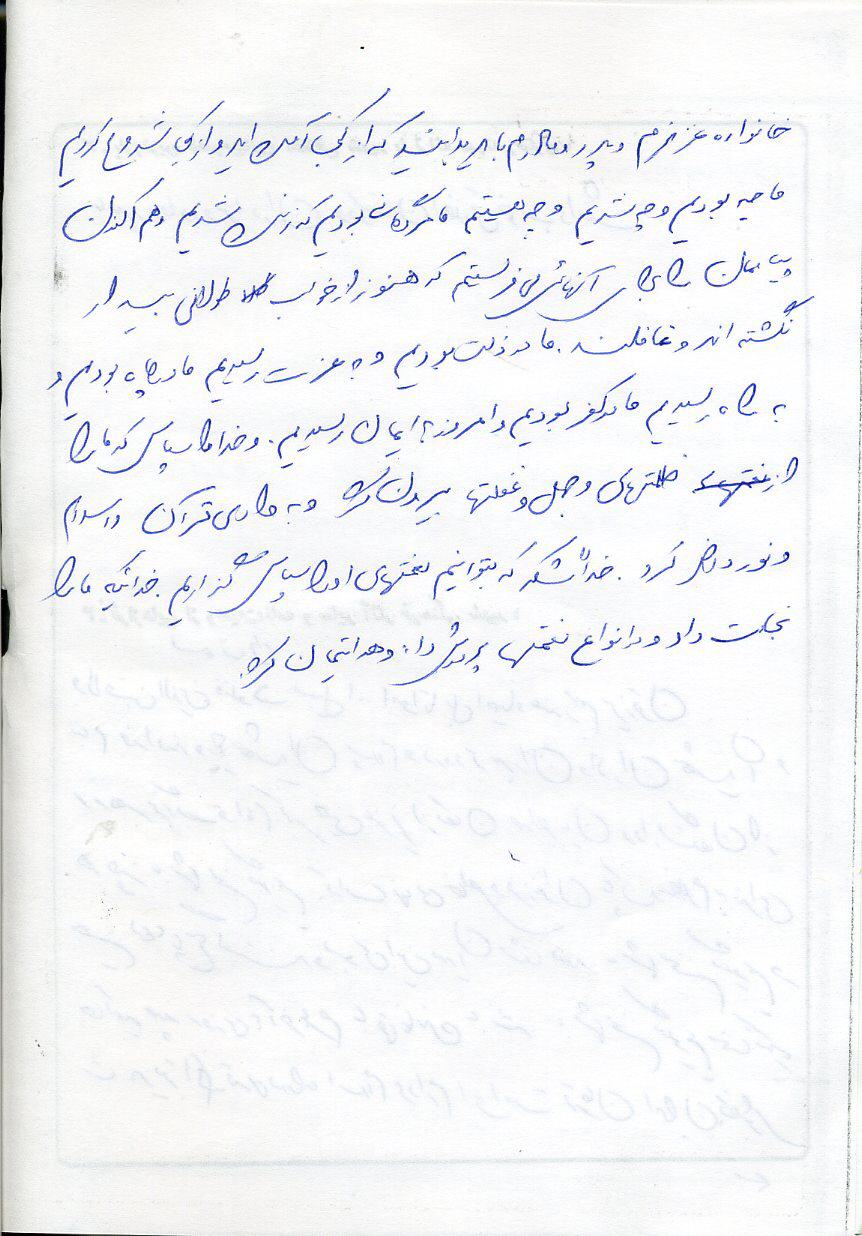 خانواده عزیزم و پدر و مادرم باید بدانید که از کجا آمده ایم و از کی شروع کردیم
ما چه بودیم و چه شدیم و چه هستیم ما مردگانی بودیم که زنده شدیم و هم اکنون
پیاممان را برای آنهائی می فرستیم که هنوز از خواب طولانی بیدار
نگشته اند و غافلند. ما در ذلت بودیم و به عزت رسیدیم ما در چاه بودیم و
به راه رسیدیم ما در کفر بودیم و امروز به ایمان رسیدیم. و خدا را سپاس که ما را
از ظلمتهای و جهل و غفلتها بیرون کرد و به وادی قرآن و اسلام
و نور داخل کرد. خدا را شکر که بتوانیم نعمتهای او را سپاس گذاریم. خدائیکه ما را
نجات داد و در انواع نعمتها پرورش داد و هدایتمان کرد.